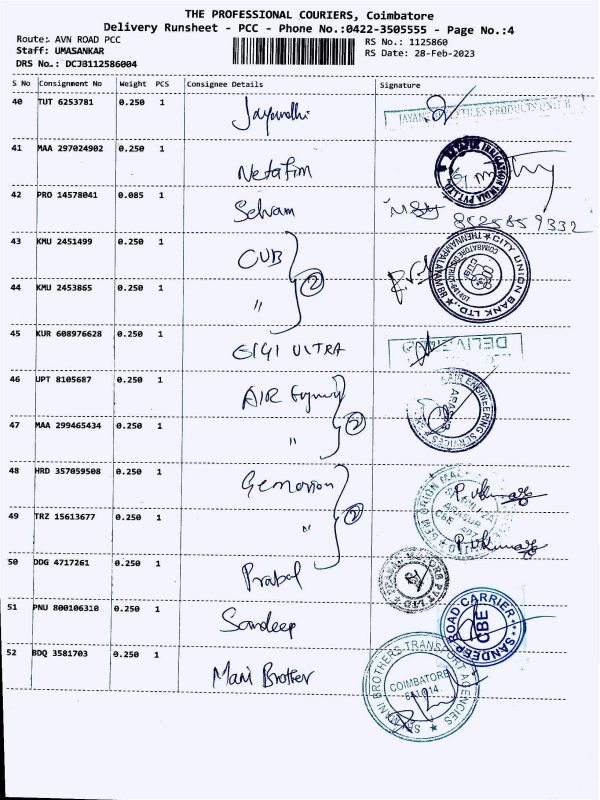 THE PROFESSIONAL COURIERS, Coimbatore
Delivery Runsheet - PCC - Phone No.:0422-3505555 - Page No.:4
Route: AVN ROAD PCC
RS No.: 1125860
Staff: UMASANKAR
RS Date: 28-Feb-2023
DRS No.: DCJB112586004
S No Consignment No Weight PCS Consignee Details Signature
40 TUT 6253781 0.250 1
41 MAA 297024902 0.250 1 Netafim
NETAFIM IRRIGATION INDIA PVT LTD
42 PRO 14578041 0.085 1 Selvam
8525859332
43 KMU 2451499 0.250 1 CUB
2
CITY UNION BANK LTD.
44 KMU 2453865 0.250 1 "
45 KUR 608976628 0.250 1 GIGI ULTRA
46 UPT 8105687 0.250 1 AIR
2
AIR ENGINEERING SERVICES
47 MAA 299465434 0.250 1 "
48 HRD 357059508 0.250 1
2
49 TRZ 15613677 0.250 1 "
50 DDG 4717261 0.250 1 Prabal
51 PNU 800106310 0.250 1 Sandeep
SANDEEP ROAD CARRIER
CBE
52 BDQ 3581703 0.250 1 Mani Brother
MANI BROTHERS TRANSPORT AGENCIES
COIMBATORE